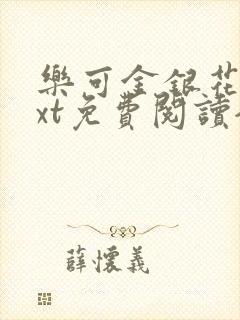 樂可金銀花
xt免費閱讀
薛懷義